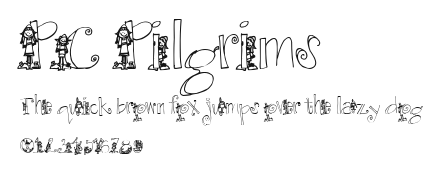 PC Pilgrims
The quick brown fox jumps over the lazy dog